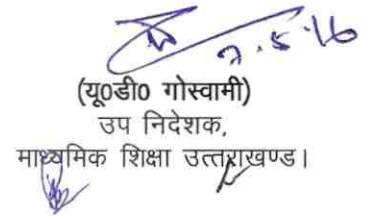 7.5.16
(यू0डी0 गोस्वामी)
उप निदेशक,
माध्यमिक शिक्षा उत्तराखण्ड।